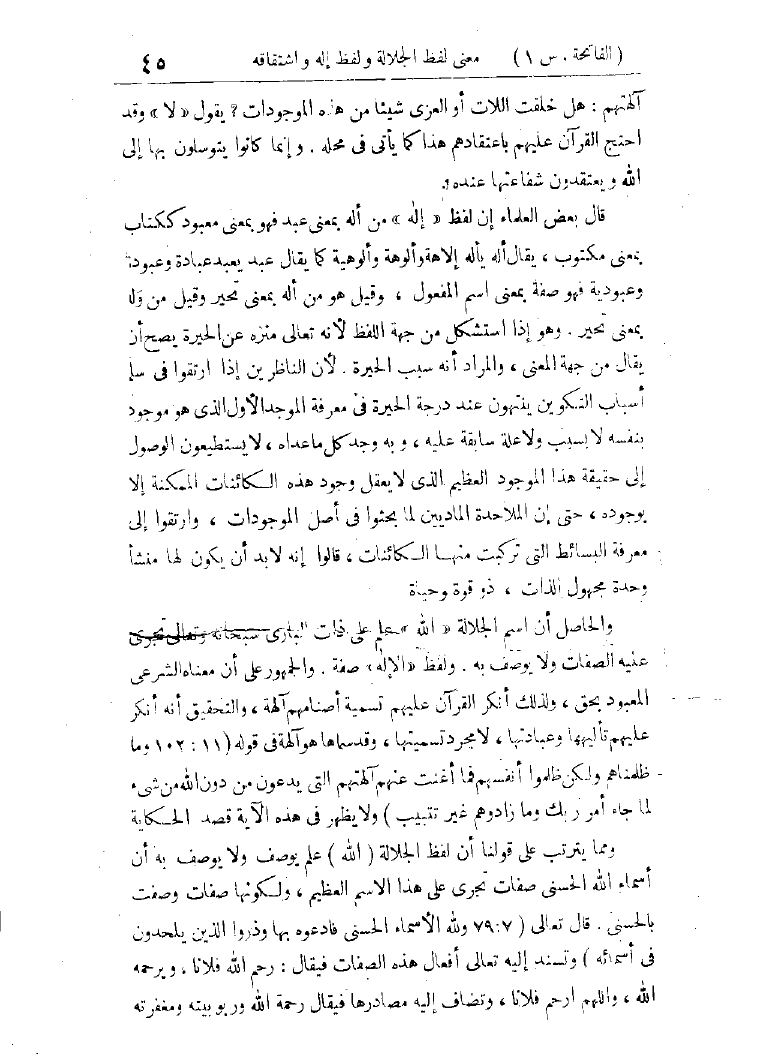 ( الفاتحة . س ١ ) معنى لفظ الجلالة ولفظ إله واشتقاقه ٤٥
آلهتهم : هل خلقت اللات أو العزى شيئا من هذه الموجودات ؟ يقول « لا » وقد
احتج القرآن عليهم باعتقادهم هذا كما يأتى فى محله . وإنما كانوا يتوسلون بها إلى
الله ويعتقدون شفاعتها عنده .
قال بعض العلماء إن لفظ « إله » من أله بمعنى عبد فهو بمعنى معبود ككتاب
بمعنى مكتوب ، يقال أله يأله إلاهة وألوهة وألوهية كما يقال عبد يعبد عبادة وعبودة
وعبودية فهو صفة بمعنى اسم المفعول ، وقيل هو من أله بمعنى تحير وقيل من وله
بمعنى تحير . وهو إذا استشكل من جهة اللفظ لأنه تعالى منزه عن الحيرة يصح أن
يقال من جهة المعنى ، والمراد أنه سبب الحيرة . لأن الناظرين إذا ارتقوا فى سلم
أسباب التكوين ينتهون عند درجة الحيرة فى معرفة الموجد الأول الذى هو موجود
بنفسه لا بسبب ولا علة سابقة عليه ، وبه وجد كل ما عداه ، لا يستطيعون الوصول
إلى حقيقة هذا الموجود العظيم الذى لا يعقل وجود هذه الكائنات الممكنة إلا
بوجوده ، حتى إن الملاحدة الماديين لما بحثوا فى أصل الموجودات ، وارتقوا إلى
معرفة البسائط التى تركبت منها الكائنات ، قالوا إنه لابد أن يكون لها منشأ
وحدة مجهول الذات ، ذو قوة وحياة
والحاصل أن اسم الجلالة « الله » علم على ذات البارى سبحانه وتعالى تجرى
عليه الصفات ولا يوصف به . ولفظ «الإله» صفة . والجمهور على أن معناه الشرعى
المعبود بحق ، ولذلك أنكر القرآن عليهم تسمية أصنامهم آلهة ، والتحقيق أنه أنكر
عليهم تأليهها وعبادتها ، لا مجرد تسميتها ، وقد سماها هو آلهة فى قوله ( ١١ : ١٠٢ وما
ظلمناهم ولكن ظلموا أنفسهم فما أغنت عنهم آلهتهم التى يدعون من دون الله من شىء
لما جاء أمر ربك وما زادوهم غير تتبيب ) ولا يظهر فى هذه الآية قصد الحكاية
ومما يترتب على قولنا أن لفظ الجلالة ( الله ) علم يوصف ولا يوصف به أن
أسماء الله الحسنى صفات تجرى على هذا الاسم العظيم ، ولكونها صفات وصفت
بالحسنى . قال تعالى ( ٧ : ٧٩ ولله الأسماء الحسنى فادعوه بها وذروا الذين يلحدون
فى أسمائه ) وتسند إليه تعالى أفعال هذه الصفات فيقال : رحم الله فلانا ، ويرحمه
الله ، واللهم ارحم فلانا ، وتضاف إليه مصادرها فيقال رحمة الله وربوبيته ومغفرته